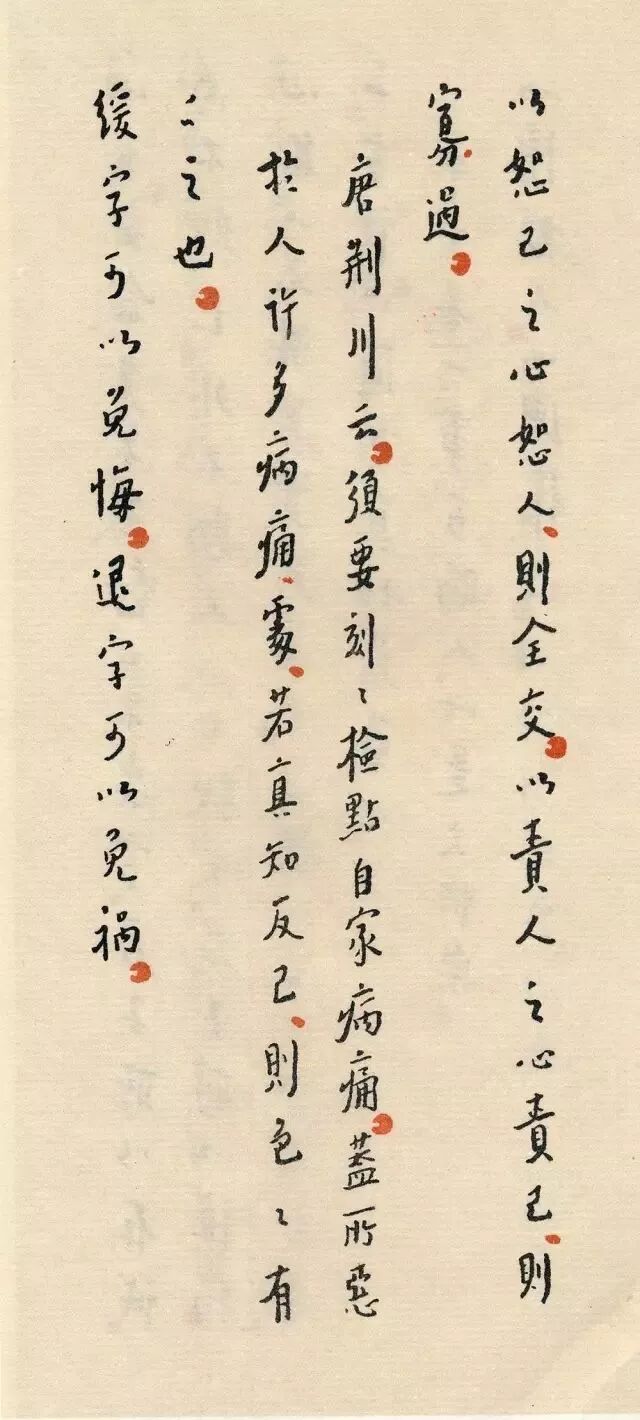 以恕己之心恕人、則全交。以責人之心責己、則
寡過。
唐荆川云。須要刻〻檢點自家病痛。蓋所惡
於人許多病痛、處、若真知反己、則色〻有
之也。
緩字可以免悔。退字可以免祸。